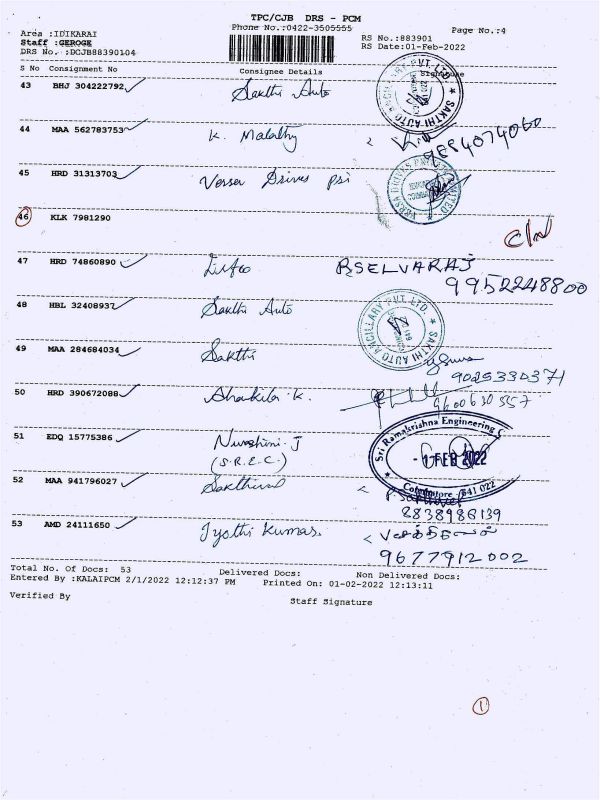 TPC/CJB DRS - PCM
Phone No.:0422-3505555
Page No.:4
Area :IDIKARAI
Staff :GEROGE
DRS No. :DCJB88390104
RS No.:883901
RS Date:01-Feb-2022
S No Consignment No Consignee Details Signature
43 BHJ 304222792 Sakthi Auto
SAKTHI AUTO ANCILLARY PVT. LTD.
44 MAA 562783753 K. Malathy
9894074060
45 HRD 31313703 Versa Drives
46 KLK 7981290
47 HRD 74860890 R.SELVARAJ
9952248800
48 HBL 32408937 Sakthi Auto
SAKTHI AUTO ANCILLARY PVT. LTD.
49 MAA 284684034 Sakthi
9025330371
50 HRD 390672088 Shakila K.
9600630557
51 EDQ 15775386
(S.R.E.C.)
Sri Ramakrishna Engineering
- 1 FEB 2022
Coimbatore - 641 022
52 MAA 941796027 Sakthivel
P. Sakthivel
2838988139
53 AMD 24111650 Jyothi Kumar
9677912002
Total No. Of Docs: 53 Delivered Docs: Non Delivered Docs:
Entered By :KALAIPCM 2/1/2022 12:12:37 PM Printed On: 01-02-2022 12:13:11
Verified By Staff Signature
1